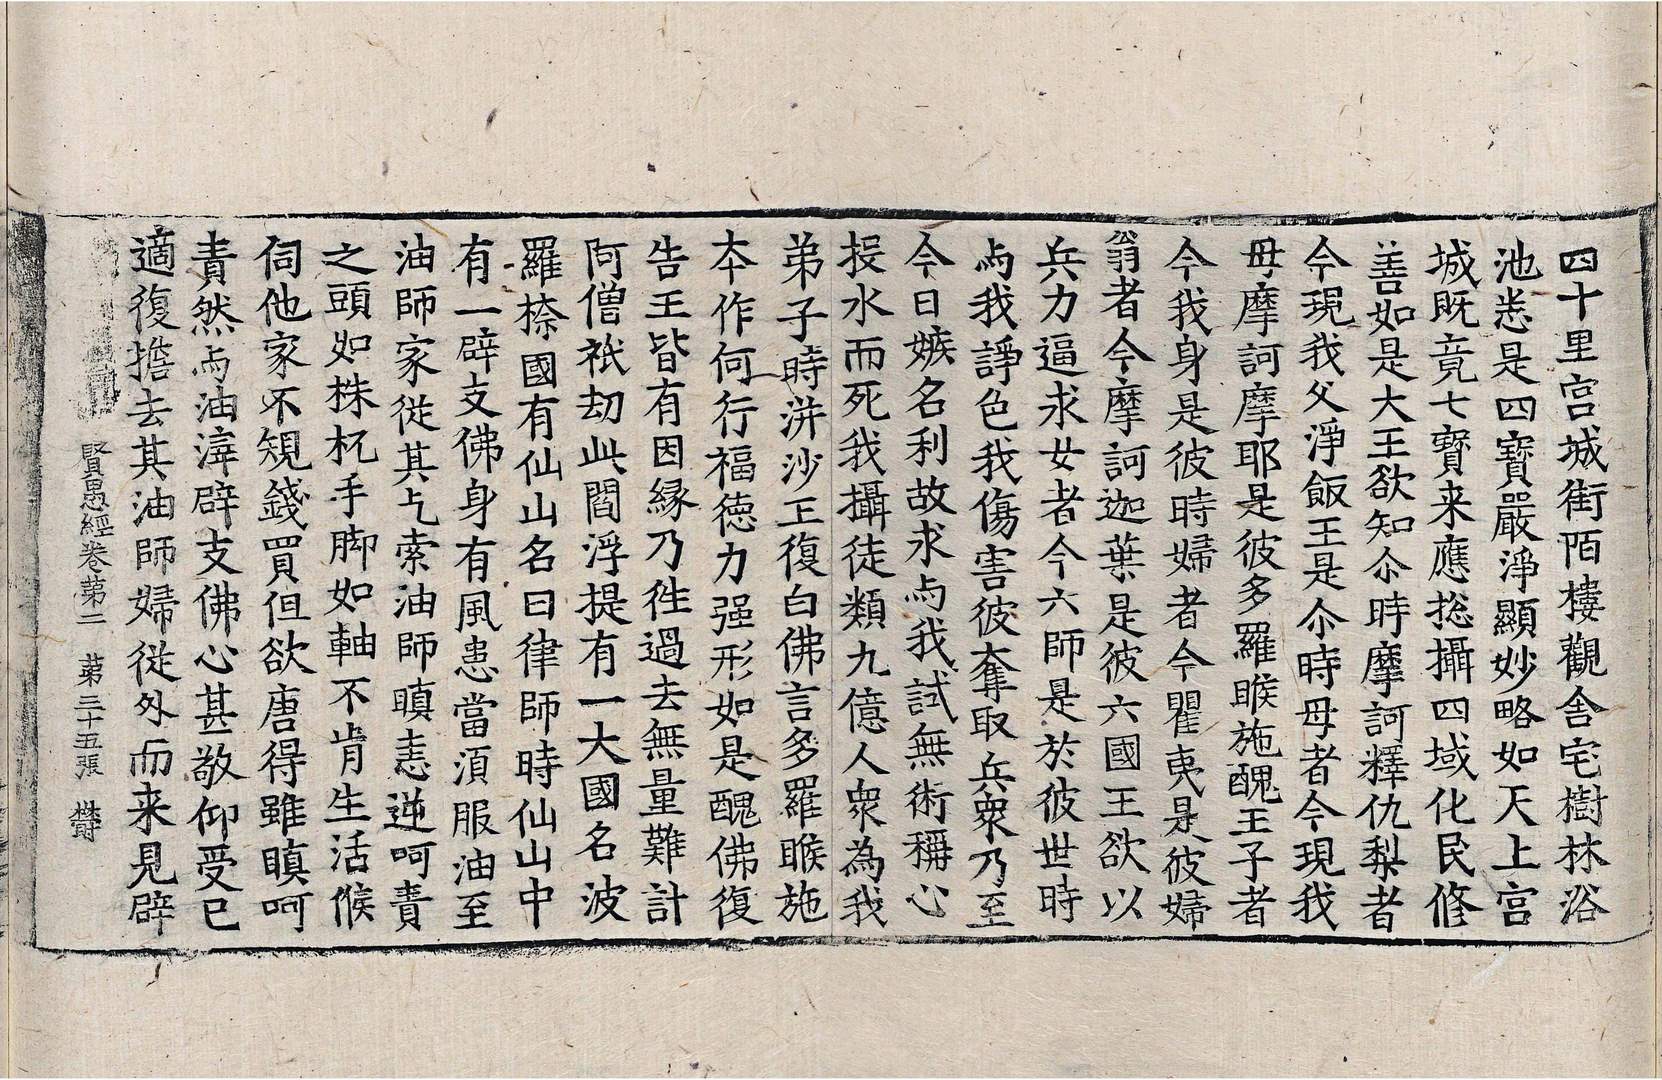 四十里宫城街陌樓觀舍宅樹林浴
池悉是四寶嚴淨顯妙略如天上宫
城既竟七寶来應捴攝四域化民修
善如是大王欲知尒時摩訶釋仇梨者
今現我父淨飯王是尒時母者今現我
母摩訶摩耶是彼多羅睺施醜王子者
今我身是彼時婦者今瞿夷是彼婦
翁者今摩訶迦葉是彼六國王欲以
兵力逼求女者今六師是於彼世時
与我諍色我傷害彼奪取兵衆乃至
今日嫉名利故求与我試無術稱心
投水而死我攝徒類九億人衆為我
弟子時洴沙王復白佛言多羅睺施
夲作何行福德力强形如是醜佛復
告王皆有因縁乃徃過去無量難計
阿僧祇劫此閻浮提有一大國名波
羅㮈國有仙山名曰律師時仙山中
有一辟支佛身有風患當須服油至
油師家從其乞索油師瞋恚逆呵責
之頭如株杌手脚如軸不肯生活候
伺他家不䂓錢買但欲唐得雖瞋呵
責然与油滓辟支佛心甚敬仰受已
適復擔去其油師婦從外而来見辟
賢愚經卷苐二　苐三十五張　欝